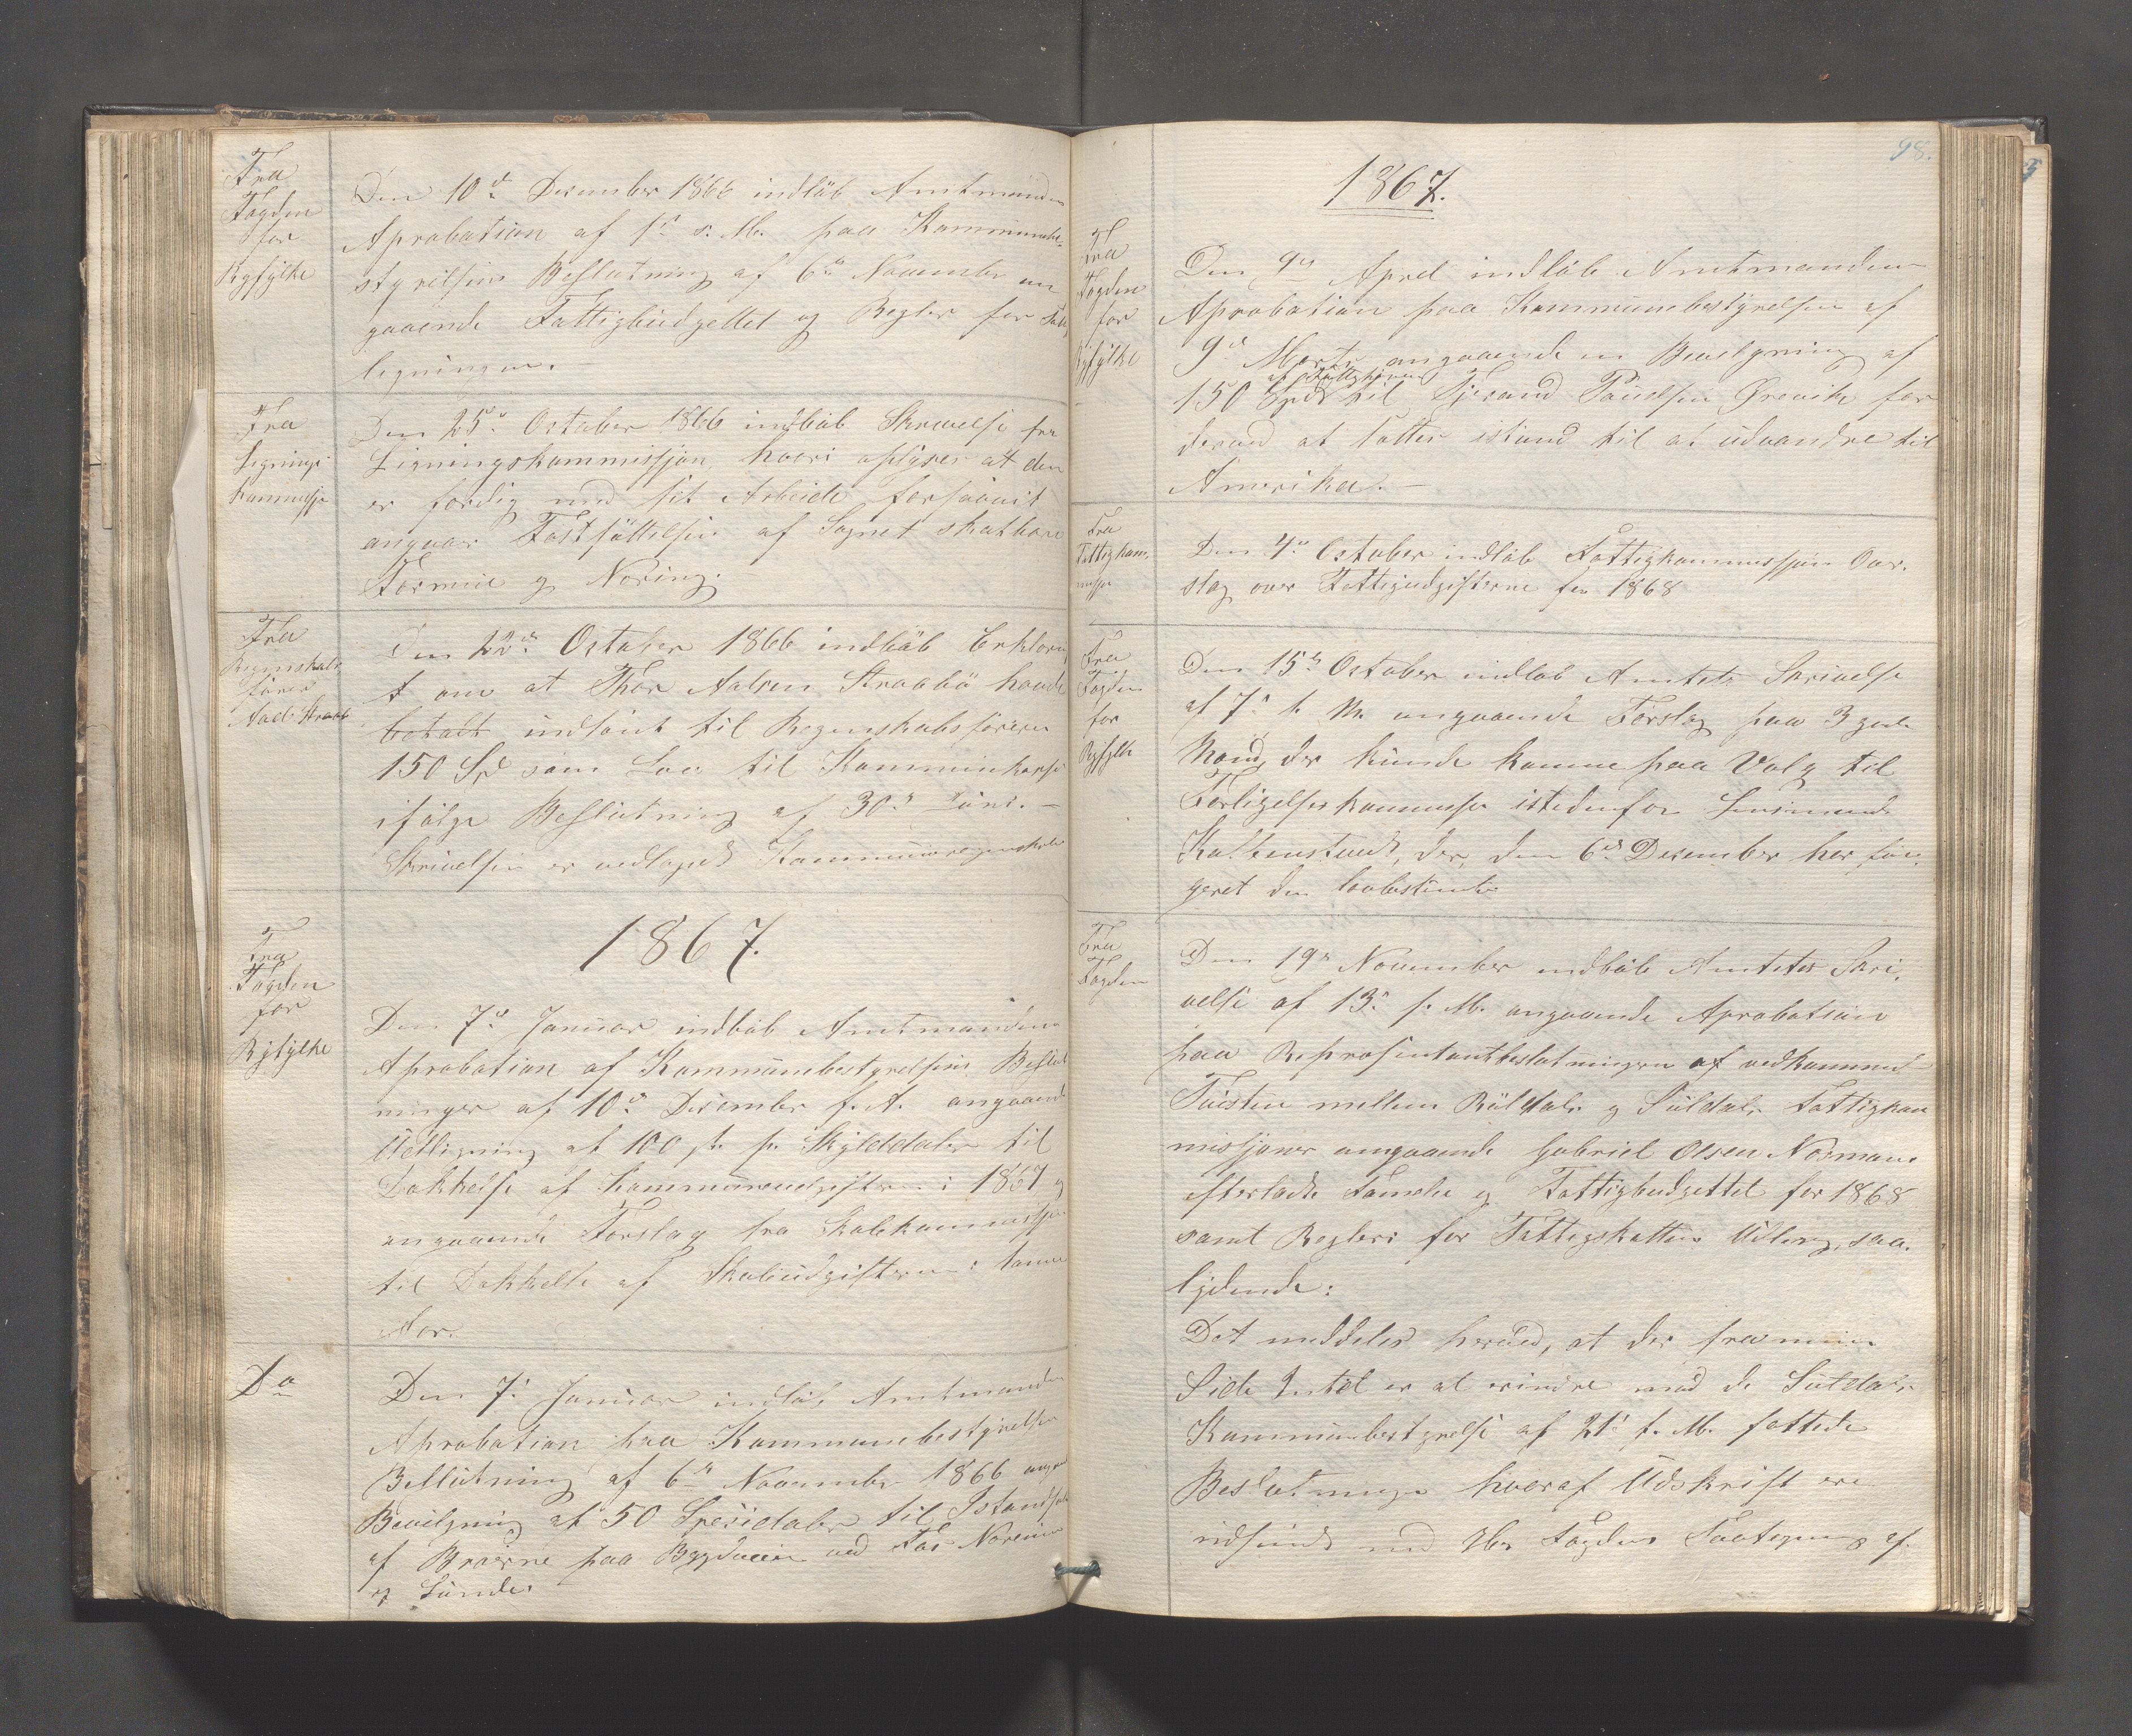 Fra
Fogden
for
Ryfylke
Den 10de December 1866 indløb Amtmandens
Aprobation af 1ste s. M. paa Kommunebe-
styrelsens Beslutning af 6te November an
gaaende Fattigbudgettet og Regler for
ligningen.
Fra
Lignings-
kommissjo
Den 25de October 1866 indløb Skrivelse fra
Ligningskommissjon, hvori oplyses att den
er færdig med sit Arbeide forsaavit
angaar Fastsættelsen af Sognet skatbare
Formue og Næring.
Fra
Regnskabs
fører
Aad. Straabø
Den 22de October 1866 indløb Erklæring
om at Thor Aalsen Straabø havde
betalt indsent til Regnskabsføreren
150 Spd som Laan til Kommunkassen
ifølge Beslutning af 30te Juni. —
Skrivelsen er vedlagt Kommuneregnskabet
1867.
Fra
Fogden
for
Ryfylke
Den 7de Januar indløb Amtmandens
Aprobation af Kommunebestyrelsens Beslut
ninger af 10de December f. A. angaaende
Udligning af 100 s. pr. Skylddaler til
Dækkelse af Kommuneudgifterne i 1867 og
angaaende Forslag fra Skolekommissjon
til Dækkelse af Skoleudgifterne i samme
Aar.
Do
Den 7de Januar indløb Amtmandens
Aprobation paa Kommunebestyrelsens
Beslutning af 6te November 1866 ang
Bevilgning af 50 Speciedaler til Istandsæt
af Broerne paa Bygdeveien ved Fos Noreim
og Lunde.
98.
1867.
Fra
Fogden
for
Ryfylke
Den 9de April indløb Amtmandens
Aprobation paa Kommunebestyrelsen af
9de Marts angaaende en Bevilgning af
af Fattigkassen
150 Spd til Tjerand Paulsen Grevik for
derved at sættes istand til at udvandre til
Amerika. —
Fra
Fattigkom-
missjo
Den 4de October indløb Fattigkommissjon Over-
slag over Fattigudgifterne for 1868
Fra
Fogden
for
Ryfylke
Den 15de October indløb Amtets Skrivelse
af 7de s. M. angaaende Forslag paa 3 gode
Mænd, der kunde komme paa Valg til
Forligelseskommissjo istedenfor Lensmand
Kolbenstvedt, der den 6te December har fun-
geret den lovbestemte
Fra
Fogden
Den 19de November indløb Amtets Skri-
velse af 13de s. M. angaaende Aprobation
paa Repræsentantbeslutningen af vedkommend
Tvisten mellem Røldals og Suldals Fattigkom
missjoner angaaende Gabriel Olsen Nærmans
efterladte Familie og Fattigbudgettet for 1868
samt Regler for Fattigskattens Udligng, saa-
lydende:
Det meddeles herved, at der fra min
Side Intet er at erindre med de Suldals
Kommunebestyrelse af 21de f. M. fattede
Beslutninger hvoraf Udskrift ere
indsendt med Hr. Fogdens Paategning af